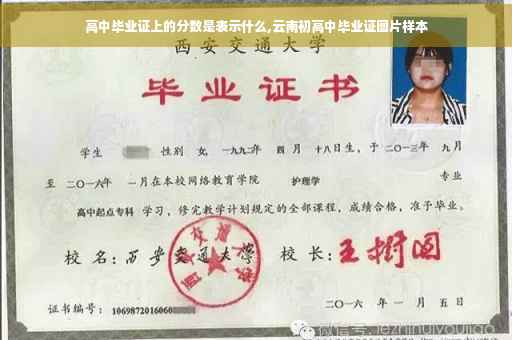 高中毕业证上的分数是表示什么,云南初高中毕业证图片样本
西安交通大学
毕业证书
学生 性别 女, 一九九二年 四 月 十八日生, 于 二〇一三年 九月
至 二〇一六年 一月在本校网络教育学院 护理学 专业
高中起点专科 学习, 修完教学计划规定的全部课程, 成绩合格, 准予毕业。
校 名: 西安交通大学 校 长: 王树国
西安交通大学
证书编号: 1069872016060
二〇一六 年 一 月 五 日
微信号: jiezhihuiyoujiao